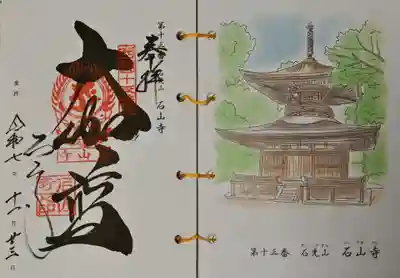 第十三番 石山寺
奉拝
大伽藍
石山寺
令和七年十一月廿三日
第十三番 石光山 石山寺